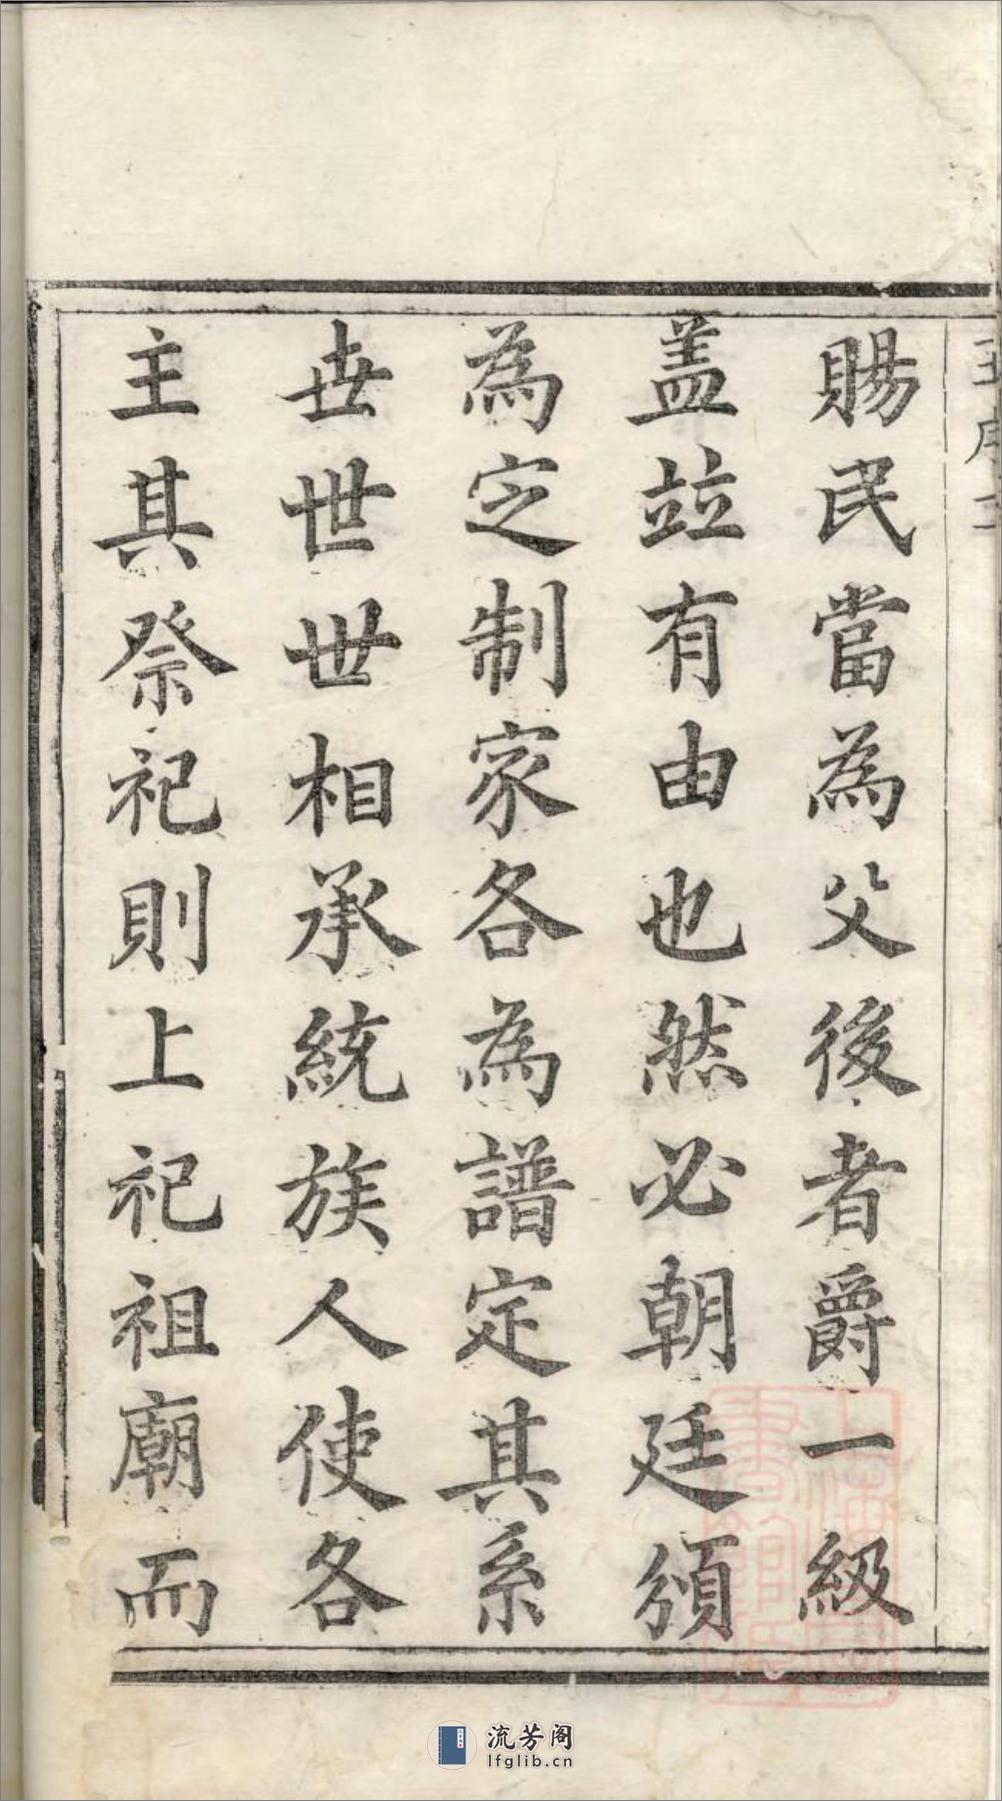 賜民當為父後者爵一級
盖竝有由也然必朝廷頒
為定制家各為譜定其系
世世世相承統族人使各
主其祭祀則上祀祖廟而
流芳阁
lfglib.cn